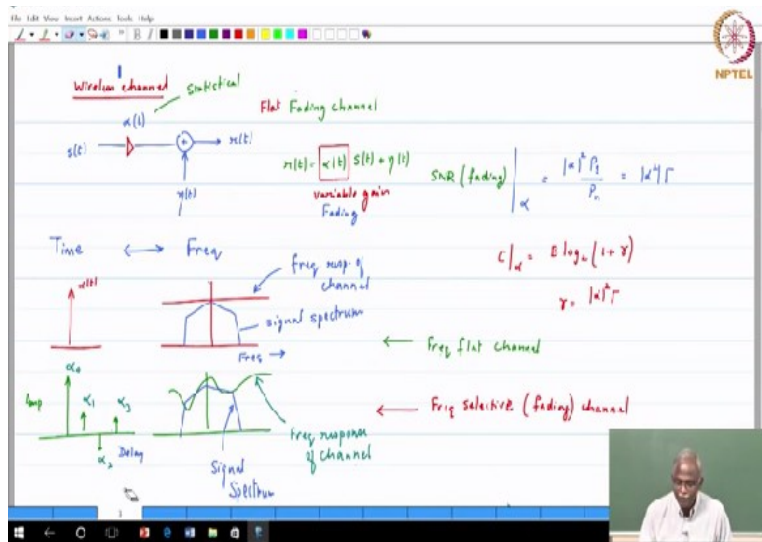 File Edit View Insert Actions Tools Help
NPTEL
Wireless channel
Statistical
α(t)
Flat Fading channel
s(t)
+
r(t)
η(t)
r(t) = α(t) s(t) + η(t)
variable gain
Fading
SNR (fading)|α = |α|² Ps / Pn = |α|² Γ
Time ↔ Freq
C|α = B log₂ (1 + γ)
γ = |α|² Γ
α(t)
freq resp. of
channel
signal spectrum
Freq →
← Freq flat channel
Imp
α₀
α₁
α₂
α₃
Delay
Freq response
of channel
Signal
Spectrum
← Freq selective (fading) channel